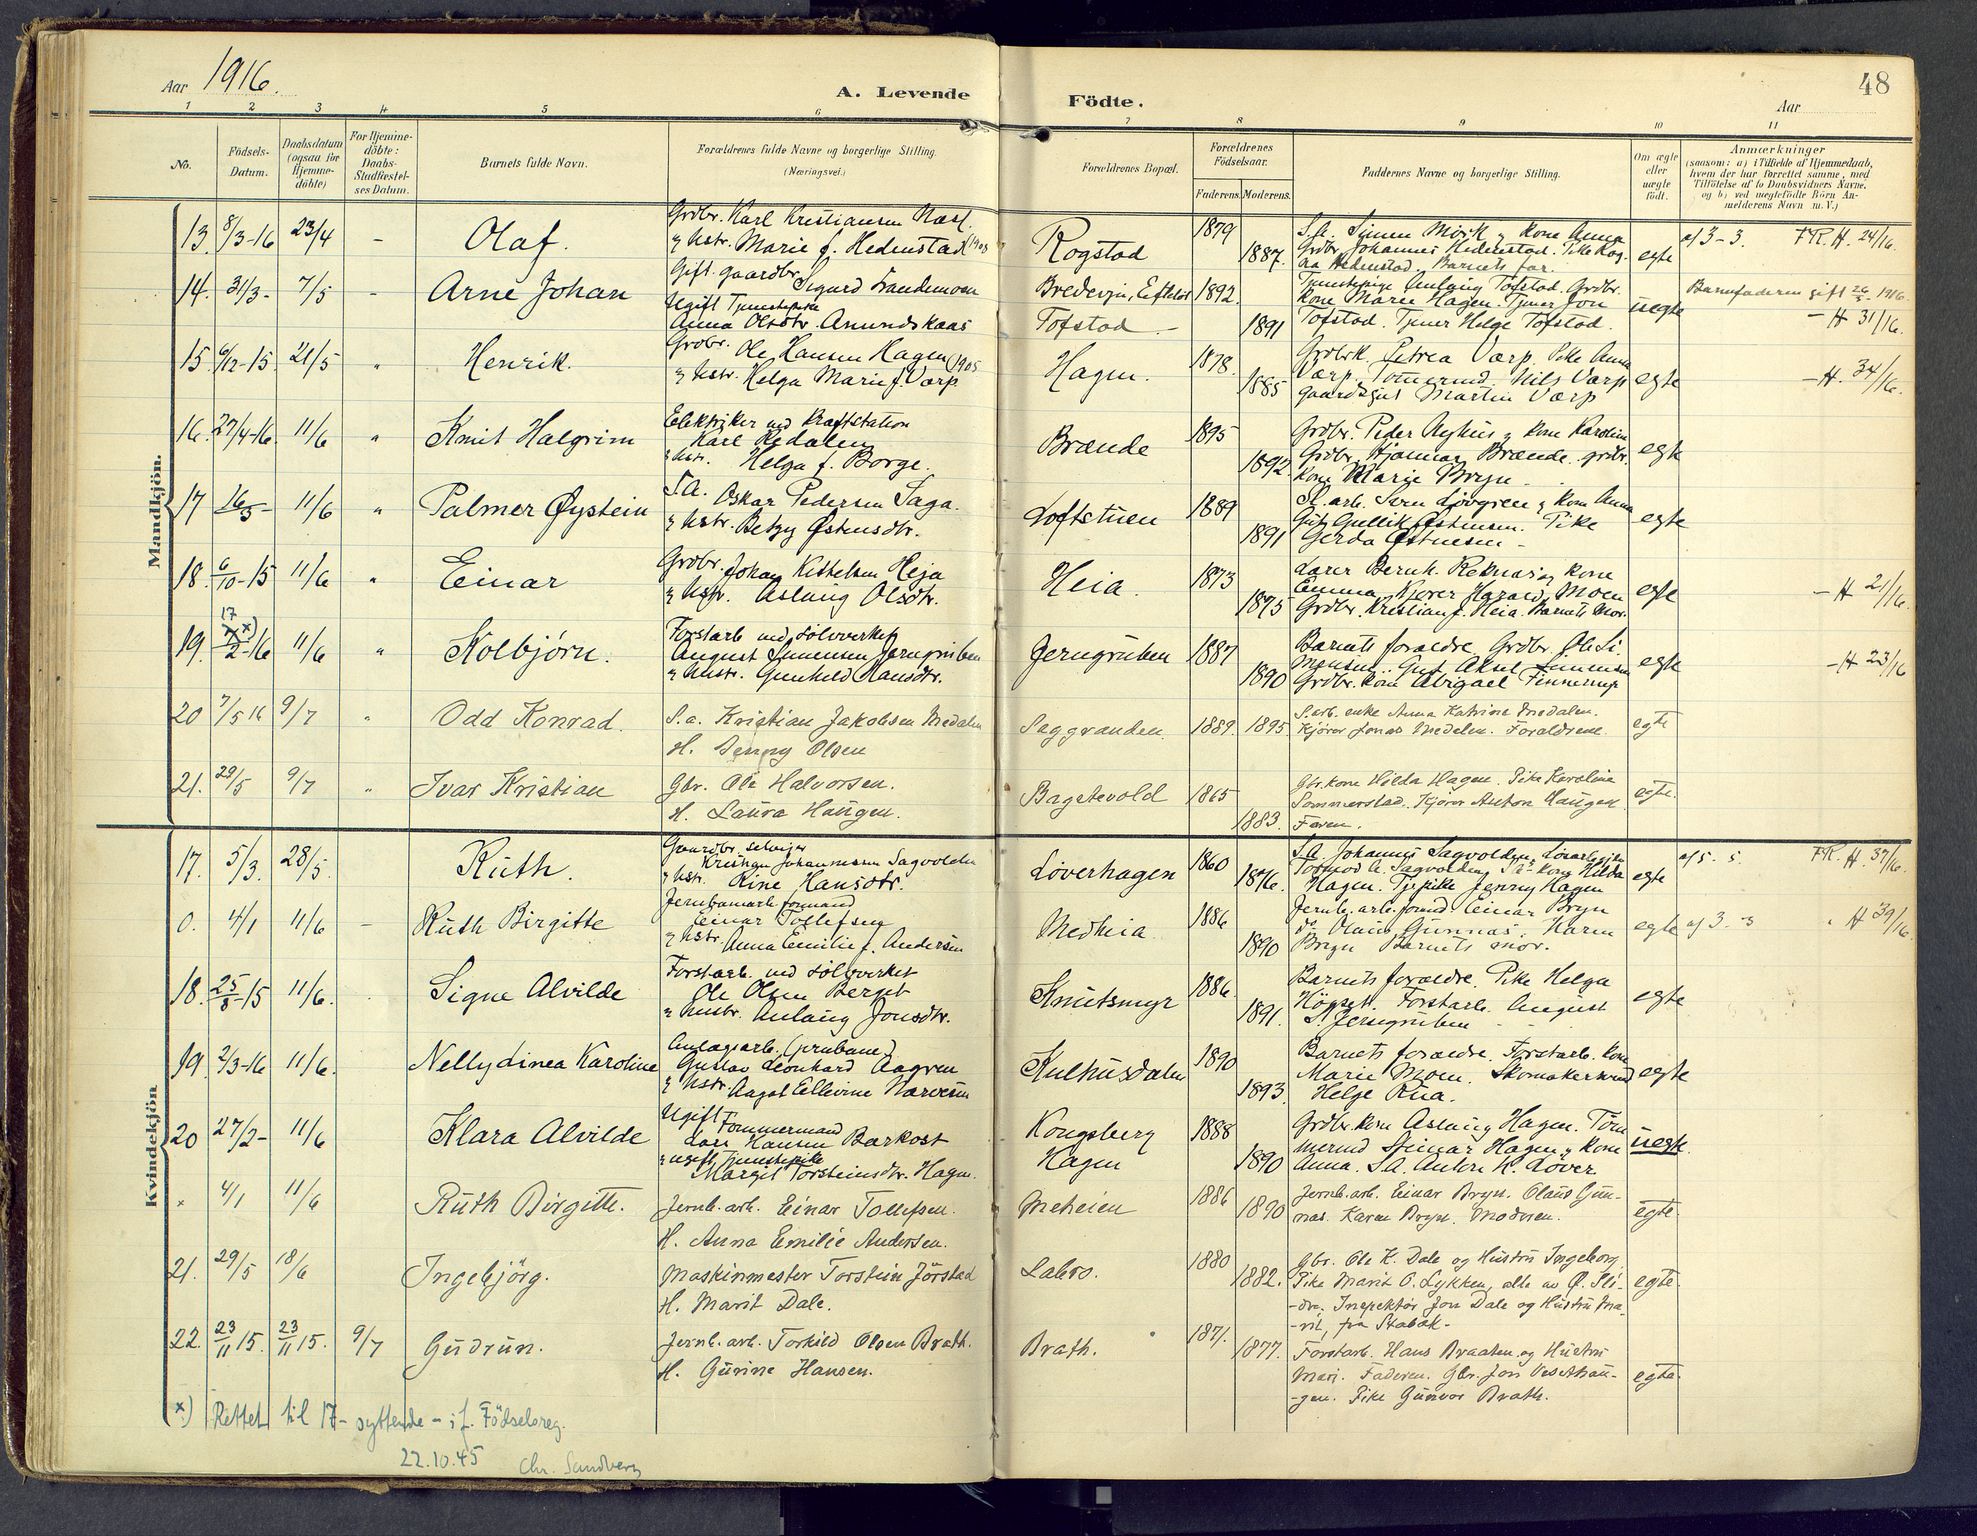 Aar 1916.
A. Levende Födte.
Aar
48
1 2 3 4 5 6 7 8 9 10 11
No.
Födsels-
Datum.
Daabsdatum
(ogsaa for
Hjemme-
döbte)
For Hjemme-
döbte:
Daabs-
Stadfæstel-
ses Datum.
Barnets fulde Navn.
Forældrenes fulde Navne og borgerlige Stilling.
(Næringsvei.)
Forældrenes Bopæl.
Forældrenes
Födselsaar.
Faderens. Moderens.
Faddernes Navne og borgerlige Stilling.
Om ægte
eller
uægte
født.
Anmærkninger
(saasom: a) i Tilfælde af Hjemmedaab,
hvem der har forrettet samme, med
Tilføielse af to Daabsvidners Navne.
og b) ved uægtefödte Börn An-
melderens Navn m. V.)
Mandkjön.
13. 8/3-16 23/4 - Olaf.
Grdbr. Karl Kristiansen
& hstr. Marie f. Hedenstad 1903
Rogstad 1879 1887.
S.A. Simen Mörk & kone Anna
Grdbr. Johannes Hedenstad. Pike
Hedenstad. Barnets far.
egte
a/ 3-3. F.R. H. 24/16.
14. 31/3- 7/5 - Arne Johan
Gift. gaardbr. Sigurd
Ugift Tjenestepike
Anna Olsdtr. Amundskaas
Tofstad 1892. 1891
Tjenestepige Aslaug Tofstad. Grdbr.
kone Marie Hagen. Tjener Jon
Tofstad. Tjener Helge Tofstad.
uegte
Barnefaderen gift 26/3 1916.
- H 31/16.
15. 6/12-15 21/5 " Henrik.
Grdbr. Ole Hansen Hagen (1905
& hstr. Helga Marie f. Værp
Hagen. 1878. 1885
Grdbrk. Petrea Værp. Pike Anna
Værp. Tömmermd. Nils Værp
Martin Værp
egte
-H. 34/16.
16. 27/4-16. 11/6 " Knut Halgrim
Elektriker ved Kraftstation
Karl Redalen
& hstr. Helga f. Borge.
Brænde 1895 1892.
Grdbr. Peder Nyhus & kone Karoline
Grdbr. Hjalmar Brænde. grdbr.
kone Marie Bryn
egte
17 16/3 11/6 " Palmer Øystein
S.A. Oskar Pedersen Saga.
& hstr. Betzy Østensdtr.
Loftstuen 1889 1891
S. arb. Sven Lövgren & kone Anna
Gut Gullik Østensen. Pike
Gerda Østensen -
egte
18. 6/10-15 11/6 " Einar
Grdbr. Johan Kittelsen Heja
& hstr. Aslaug Olsdtr.
Heia. 1873 1875
Lærer Bernh. & kone
Emma. Kjörer Harald Moen
Grdbr. Kristian f. Heia. Barnets mor.
egte
- H 21/16.
19. 17 x) /2-16 11/6 " Kolbjörn.
Forstarb. ved Sölvverket
August Simensen Jerngruben
& hstr. Gunhild Hansdtr.
Jerngruben 1887 1890
Barnets foræ1dre. Grdbr. Ole Si-
monsen. Gut Aksel Simensen
Grdbr. kone Abigael Finnerup
egte
-H 23/16
20 7/5 16 9/7 " Odd Konrad.
S.a. Kristian Jakobsen Medalen
H. Jenny Olsen
Saggranden. 1889. 1895
S.arb. enke Anna Katrine Medalen.
Kjörer Jonas Medalen. Forældrene.
egte
21. 29/5 9/7 " Ivar Kristian
Gbr. Ole Halvorsen.
H. Laura Haugen.
Bagstevold 1865 1883.
Gbr.kone Hilda Hagen. Pike Karoline
Sommerstad. Kjörer Anton Haugen
Faren.
egte.
Kvindekjön
17. 5/3. 28/5. Ruth.
Gaardbr. selveier
Kristian Johannesen Sagvolden
& hstr. Rine Hansdtr.
Löverhagen 1860 1876.
S.A. Johannes Sagvolden,
Tormod A. Sagvolden, SA- kone Hilda
Hagen. Tj.pike Jenny Hagen
egte
a/ 5. 5. F.R. H. 37/16.
0. 4/1 11/6 - Ruth Birgitte
Jernbanearb. formand
Einar Tollefsen
& hstr. Anna Emilie f. Andersen
Medheia 1886 1890
Jernb. arb. formd. Einar Bryn
do Olaus Gunnas. Karen
Bryn Barnets mor.
egte
a/ 3 - 3 " H 39/16.
18. 25/8-15 11/6. Signe Alvilde
Forstarb. ved Sölvverket
Ole Olsen Berget
& hustr. Aslaug Jonsdtr.
Knutsmyr 1886. 1891.
Barnets forældre. Pike Helga
Höyset. Forstarb. August
S. Jerngruben
egte
19. 2/3-16 11/6. Nelly Linea Karoline
Anlægsarb. (grubane)
Gustav Leonhard Aagren
& hstr. Aagot Ellevine Narvesen
Kulhusdalen 1890 1893.
Barnets forældre. Forstarb. kone
Marie Moen. Skomakersvend
Helge Rua.
egte
20 27/2- 11/6 Klara Alvilde
Ugift Tömmermand
Lars Hansen Barkost
& ugift Tjenestepike
Margit Torsteinsdtr. Hagen.
Kongsberg
Hagen
1888 1890
Grdbr. kone Aslaug Hagen. Töm-
mermd Steinar Hagen & kone
Anna. S.A. Anton K. Löver.
uegte.
" 4/1 11/6 Ruth Birgitte.
Jernb. arb. Einar Tollefsen.
H. Anna Emilie Andersen.
Meheien 1886 1890
Jernb. arb. Einar Bryn. Olaus Gun-
nas. Karen Bryn. Moderen.
egte.
21. 29/5 18/6 Ingebjörg.
Maskinmester Torstein Jörstad
H. Marit Dale.
Labro. 1880 1882.
Gbr. Ole K. Dale og Hustru Ingeborg,
Pike Marit O. Lykken, alle av Ø. Sli-
-dre. Inspektör Jon Dale og Hustru Ma-
-rit, fra Stabæk.
egte.
22. 23/11 15. 23/11 15. 9/7 Gudrun.
Jernb. arb. Torkild Olsen Brath.
H. Gurine Hansen.
Brath. 1871. 1877.
Forstarb. Hans Braaten og Hustru
Mari. Faderen. Gbr. Jon Vesethau-
-gen. Pike Gunvor Brath.
egte.
x) Rettet til 17 - syttende - if. Födselsreg.
22.10.45 Chr. Sandberg